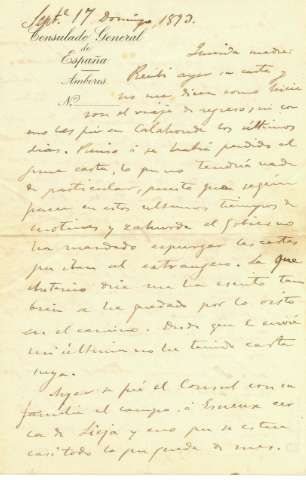 Septe 17 Domingo 1893.
Consulado General
de
España
Amberes
Nº
Querida madre:
Recibi ayer su carta y
no me dicen como hicie
ron el viaje de regreso, ni co
mo les fué en Calahonda los últimos
dias. Pienso si se habrá perdido al
guna carta, lo que no tendría nada
de particular, puesto que según
parece en estos ultimos tiempos de
motines y el gobierno
ha mandado espurgar las cartas
que iban al extrangero. La que
Antonio dice me ha escrito tam
bién se ha quedado por lo visto
en el camino. Desde que le envié
mi última no he tenido carta
suya.
Ayer se fué el Consul con su
familia al campo, á Esneux cer
ca de Lieja y creo que se estará
casi todo lo que queda de mes.